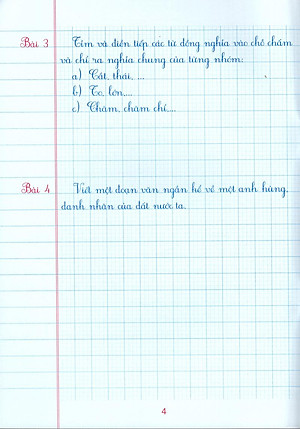 Bài 3 Tìm và điền tiếp các từ đồng nghĩa vào chỗ chấm
và chỉ ra nghĩa chung của từng nhóm:
a) Cắt, thái, ...
b) To, lớn,...
c) Chăm, chăm chỉ,...
Bài 4 Viết một đoạn văn ngắn kể về một anh hùng,
danh nhân của đất nước ta.
4